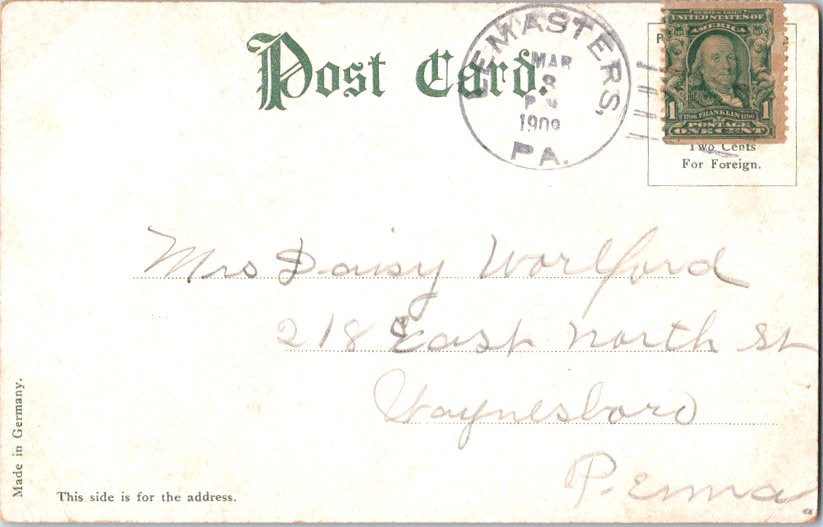 Post Card.
LEMASTERS,
MAR
8
1909
PA.
SERIES 1902
UNITED STATES OF
AMERICA
1 1
1706 FRANKLIN 1790
POSTAGE
ONE CENT
Two Cents
For Foreign.
Mrs Daisy Worlford
218 East North St
Waynesboro
Penna.
Made in Germany.
This side is for the address.